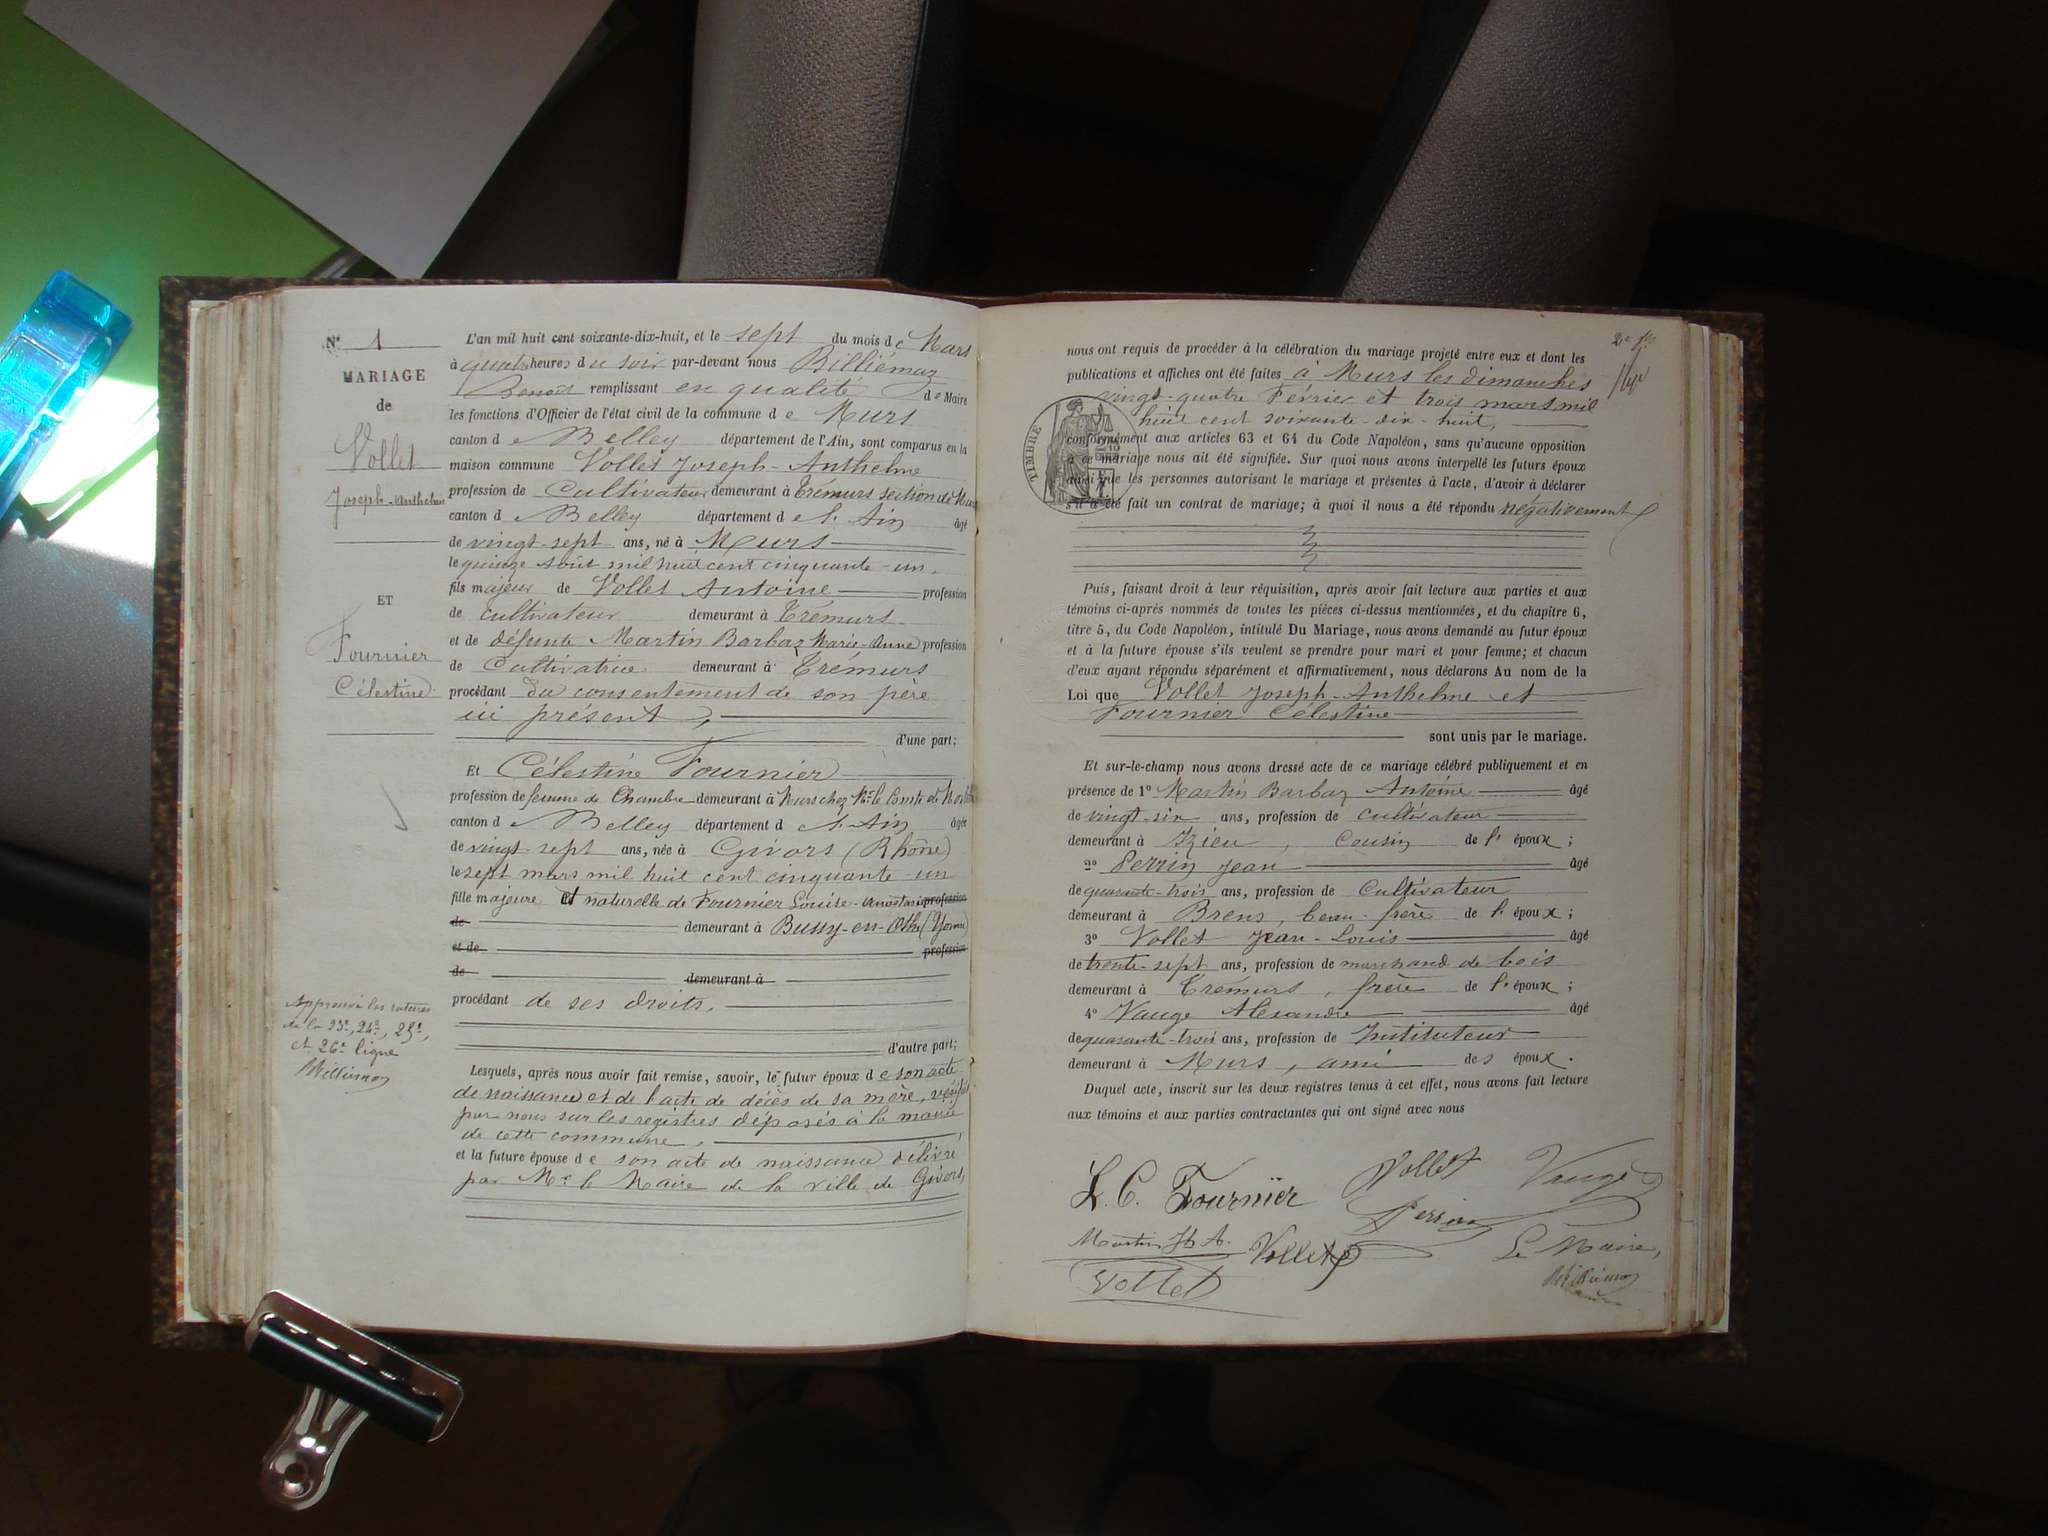 N° 1
MARIAGE
de
Vollet
Joseph-Anthelme
ET
Fournier
Célestine
Approuvé les ratures
de la 23e, 24e, 25e,
et 26e ligne
Billiémaz
L'an mil huit cent soixante-dix-huit, et le sept du mois de Mars
à quatre heures du soir par-devant nous Billiémaz
Benoit remplissant en qualité de Maire
les fonctions d'Officier de l'état civil de la commune de Murs
canton de Belley département de l'Ain, sont comparus en la
maison commune Vollet Joseph-Anthelme
profession de Cultivateur demeurant à Trémurs section de Murs
canton de Belley département de l'Ain âgé
de vingt-sept ans, né à Murs
le quinze août mil huit cent cinquante-un,
fils majeur de Vollet Antoine profession
de cultivateur demeurant à Trémurs
et de défunte Martin Barbaz Marie-Anne profession
de Cultivatrice demeurant à Trémurs
procédant du consentement de son père
ici présent,
d'une part;
Et Célestine Fournier
profession de femme de Chambre demeurant à Murs chez Mr le Comte de
canton de Belley département de l'Ain âgée
de vingt-sept ans, née à Givors (Rhône)
le sept mars mil huit cent cinquante-un
fille majeure et naturelle de Fournier Louise-Anastasie profession
de demeurant à Bussy-en-Othe (Yonne)
et de profession
de demeurant à
procédant de ses droits.
d'autre part;
Lesquels, après nous avoir fait remise, savoir, le futur époux de son acte
de naissance et de l'acte de décès de sa mère, vérifiés
par nous sur les registres déposés à la mairie
de cette commune,
et la future épouse de son acte de naissance délivré
par Mr le Maire de la ville de Givors,
nous ont requis de procéder à la célébration du mariage projeté entre eux et dont les
publications et affiches ont été faites à Murs les dimanches
vingt-quatre Février et trois mars mil
huit cent soixante-dix-huit,
TIMBRE
conformément aux articles 63 et 64 du Code Napoléon, sans qu'aucune opposition
à ce mariage nous ait été signifiée. Sur quoi nous avons interpellé les futurs époux
ainsi que les personnes autorisant le mariage et présentes à l'acte, d'avoir à déclarer
s'il a été fait un contrat de mariage; à quoi il nous a été répondu négativement
Puis, faisant droit à leur réquisition, après avoir fait lecture aux parties et aux
témoins ci-après nommés de toutes les pièces ci-dessus mentionnées, et du chapitre 6,
titre 5, du Code Napoléon, intitulé Du Mariage, nous avons demandé au futur époux
et à la future épouse s'ils veulent se prendre pour mari et pour femme; et chacun
d'eux ayant répondu séparément et affirmativement, nous déclarons Au nom de la
Loi que Vollet Joseph-Anthelme et
Fournier Célestine
sont unis par le mariage.
Et sur-le-champ nous avons dressé acte de ce mariage célébré publiquement et en
présence de 1° Martin Barbaz Antoine âgé
de vingt-six ans, profession de cultivateur
demeurant à Izieu, Cousin de l'époux;
2° Perrin Jean âgé
de quarante-trois ans, profession de Cultivateur
demeurant à Brens, beau-frère de l'époux;
3° Vollet Jean-Louis âgé
de trente-sept ans, profession de marchand de bois
demeurant à Trémurs, frère de l'époux;
4° Vauge Alexandre âgé
de quarante-trois ans, profession de Instituteur
demeurant à Murs, ami des époux.
Duquel acte, inscrit sur les deux registres tenus à cet effet, nous avons fait lecture
aux témoins et aux parties contractantes qui ont signé avec nous
L. C. Fournier Vollet Vauge
Perrin
Martin Jh A. Vollet Le Maire,
Vollet Billiémaz